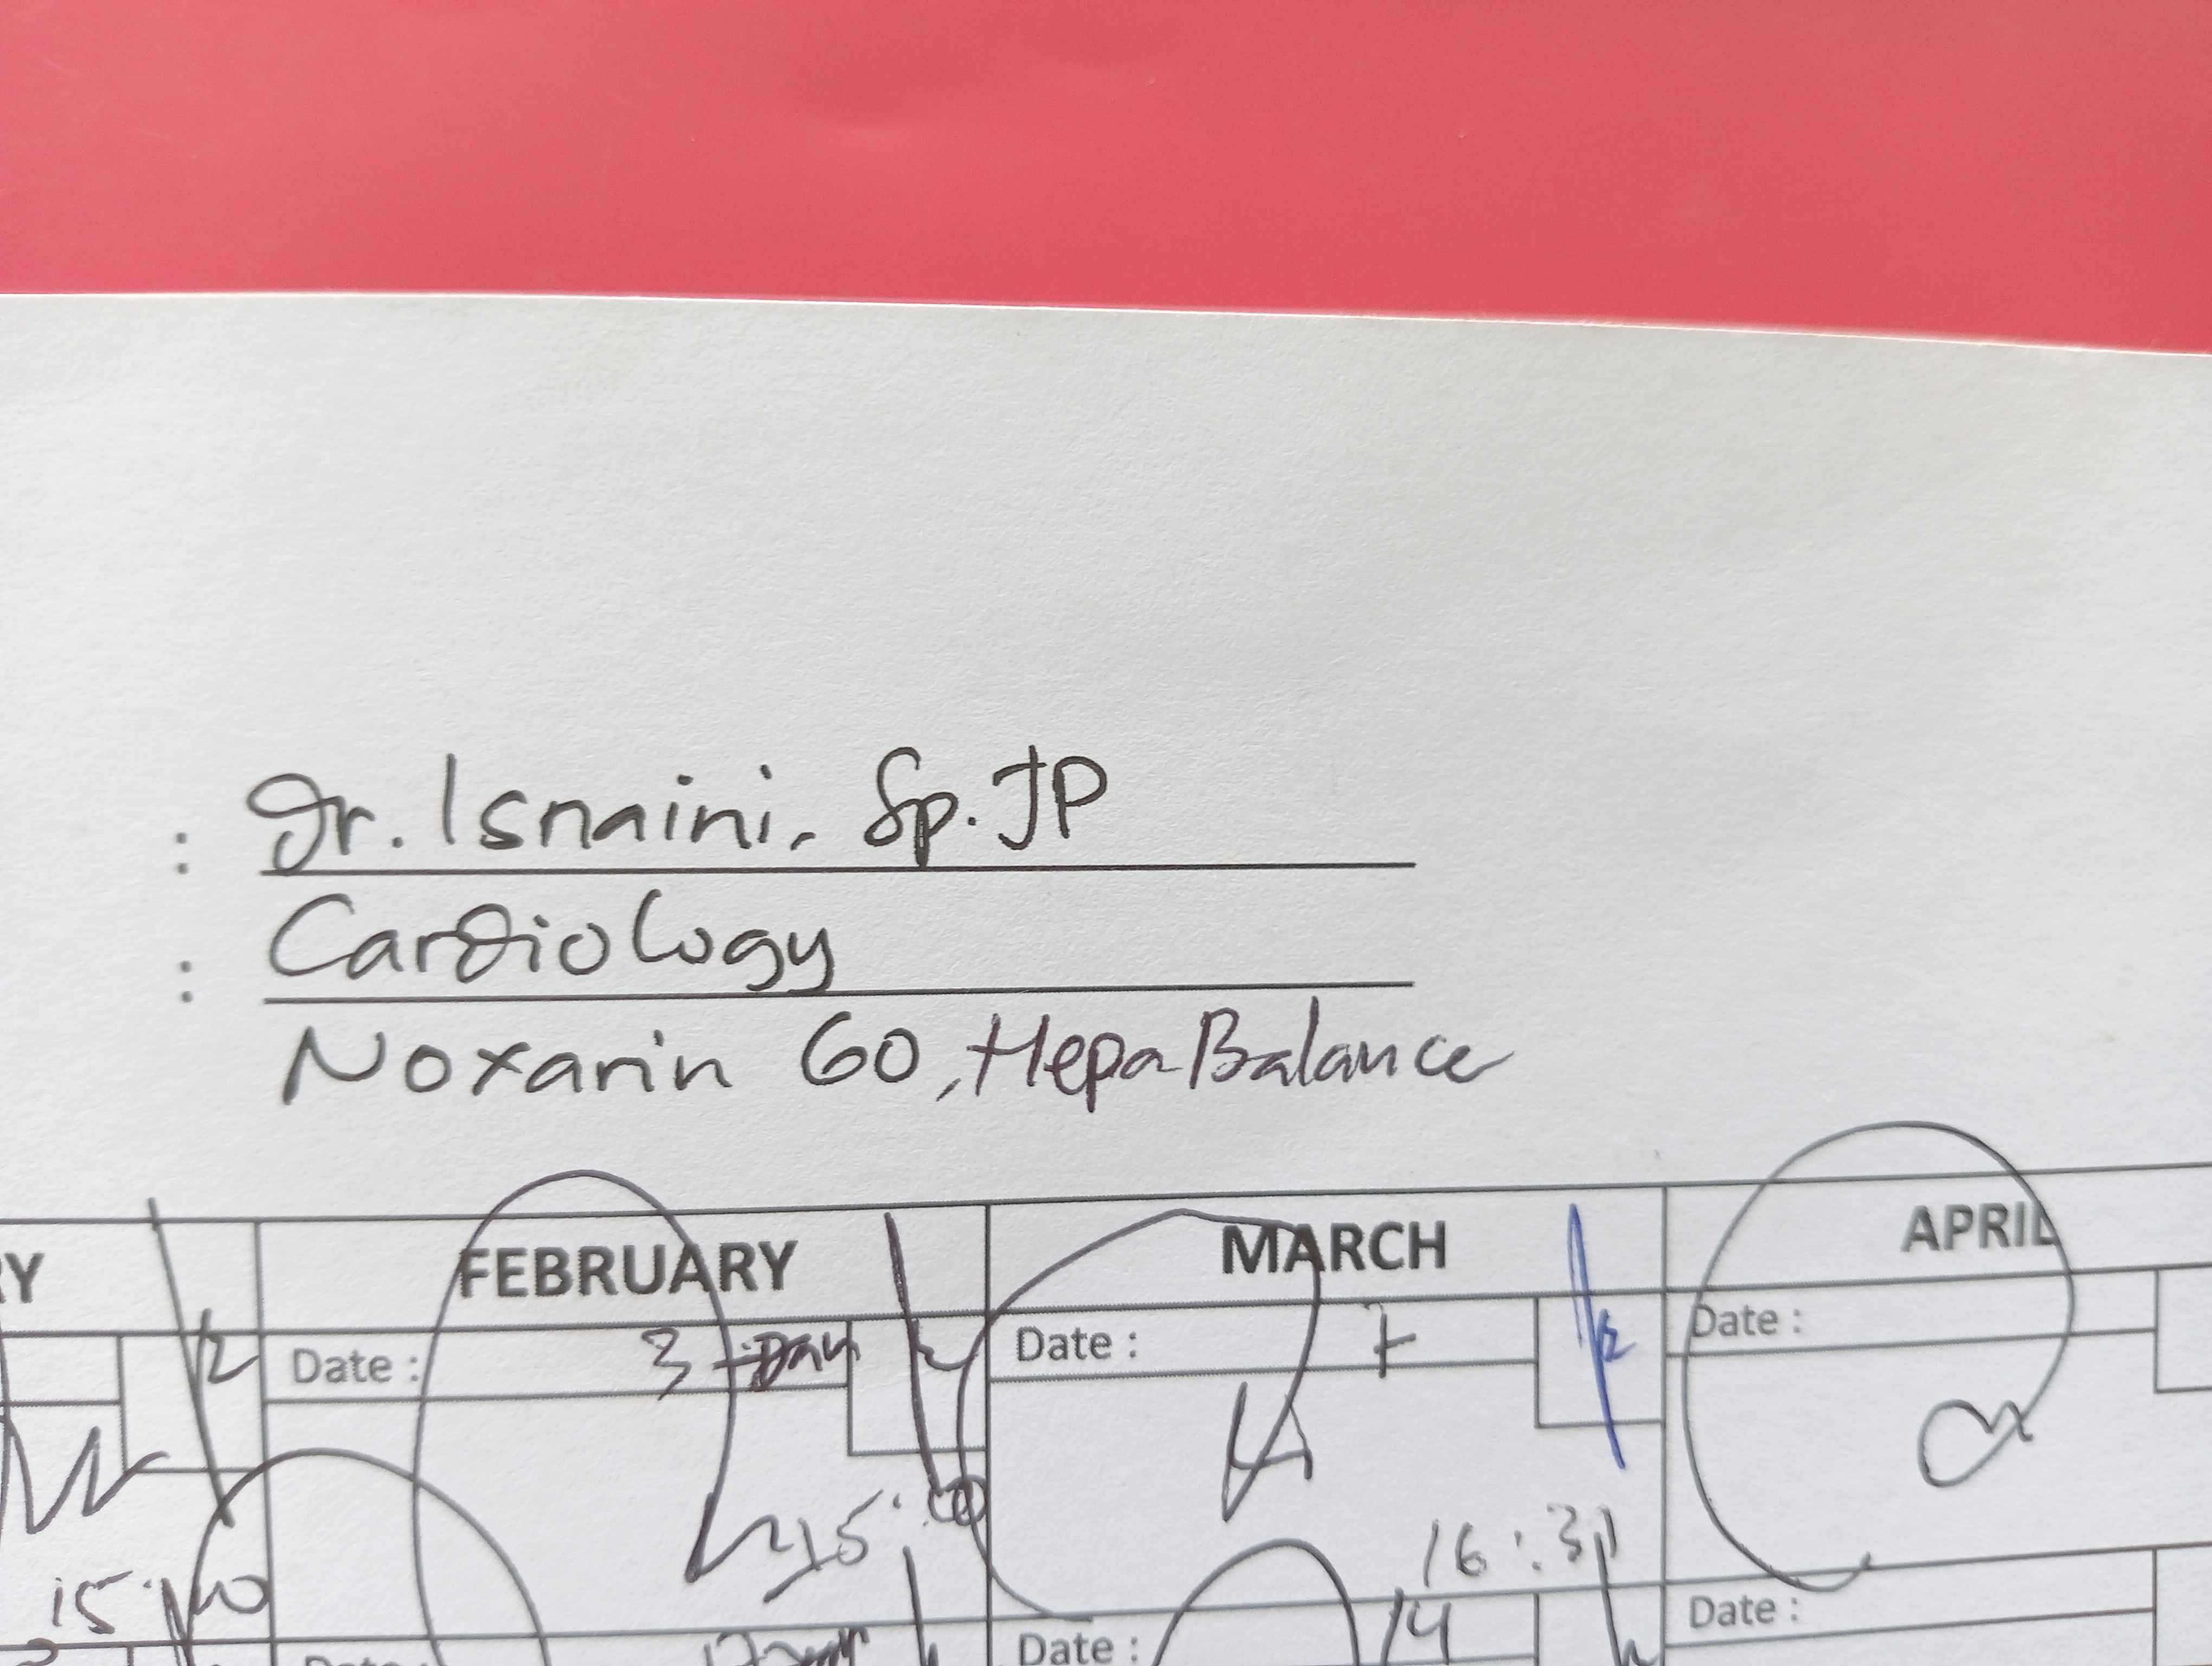 : dr. Isnaini, Sp.JP
: Cardiology
Noxarin 60, HepaBalance
RY FEBRUARY MARCH APRIL
Date : 3 Date : 7 Date :
15: 16:31
15:
Date : Date : 14 Date :